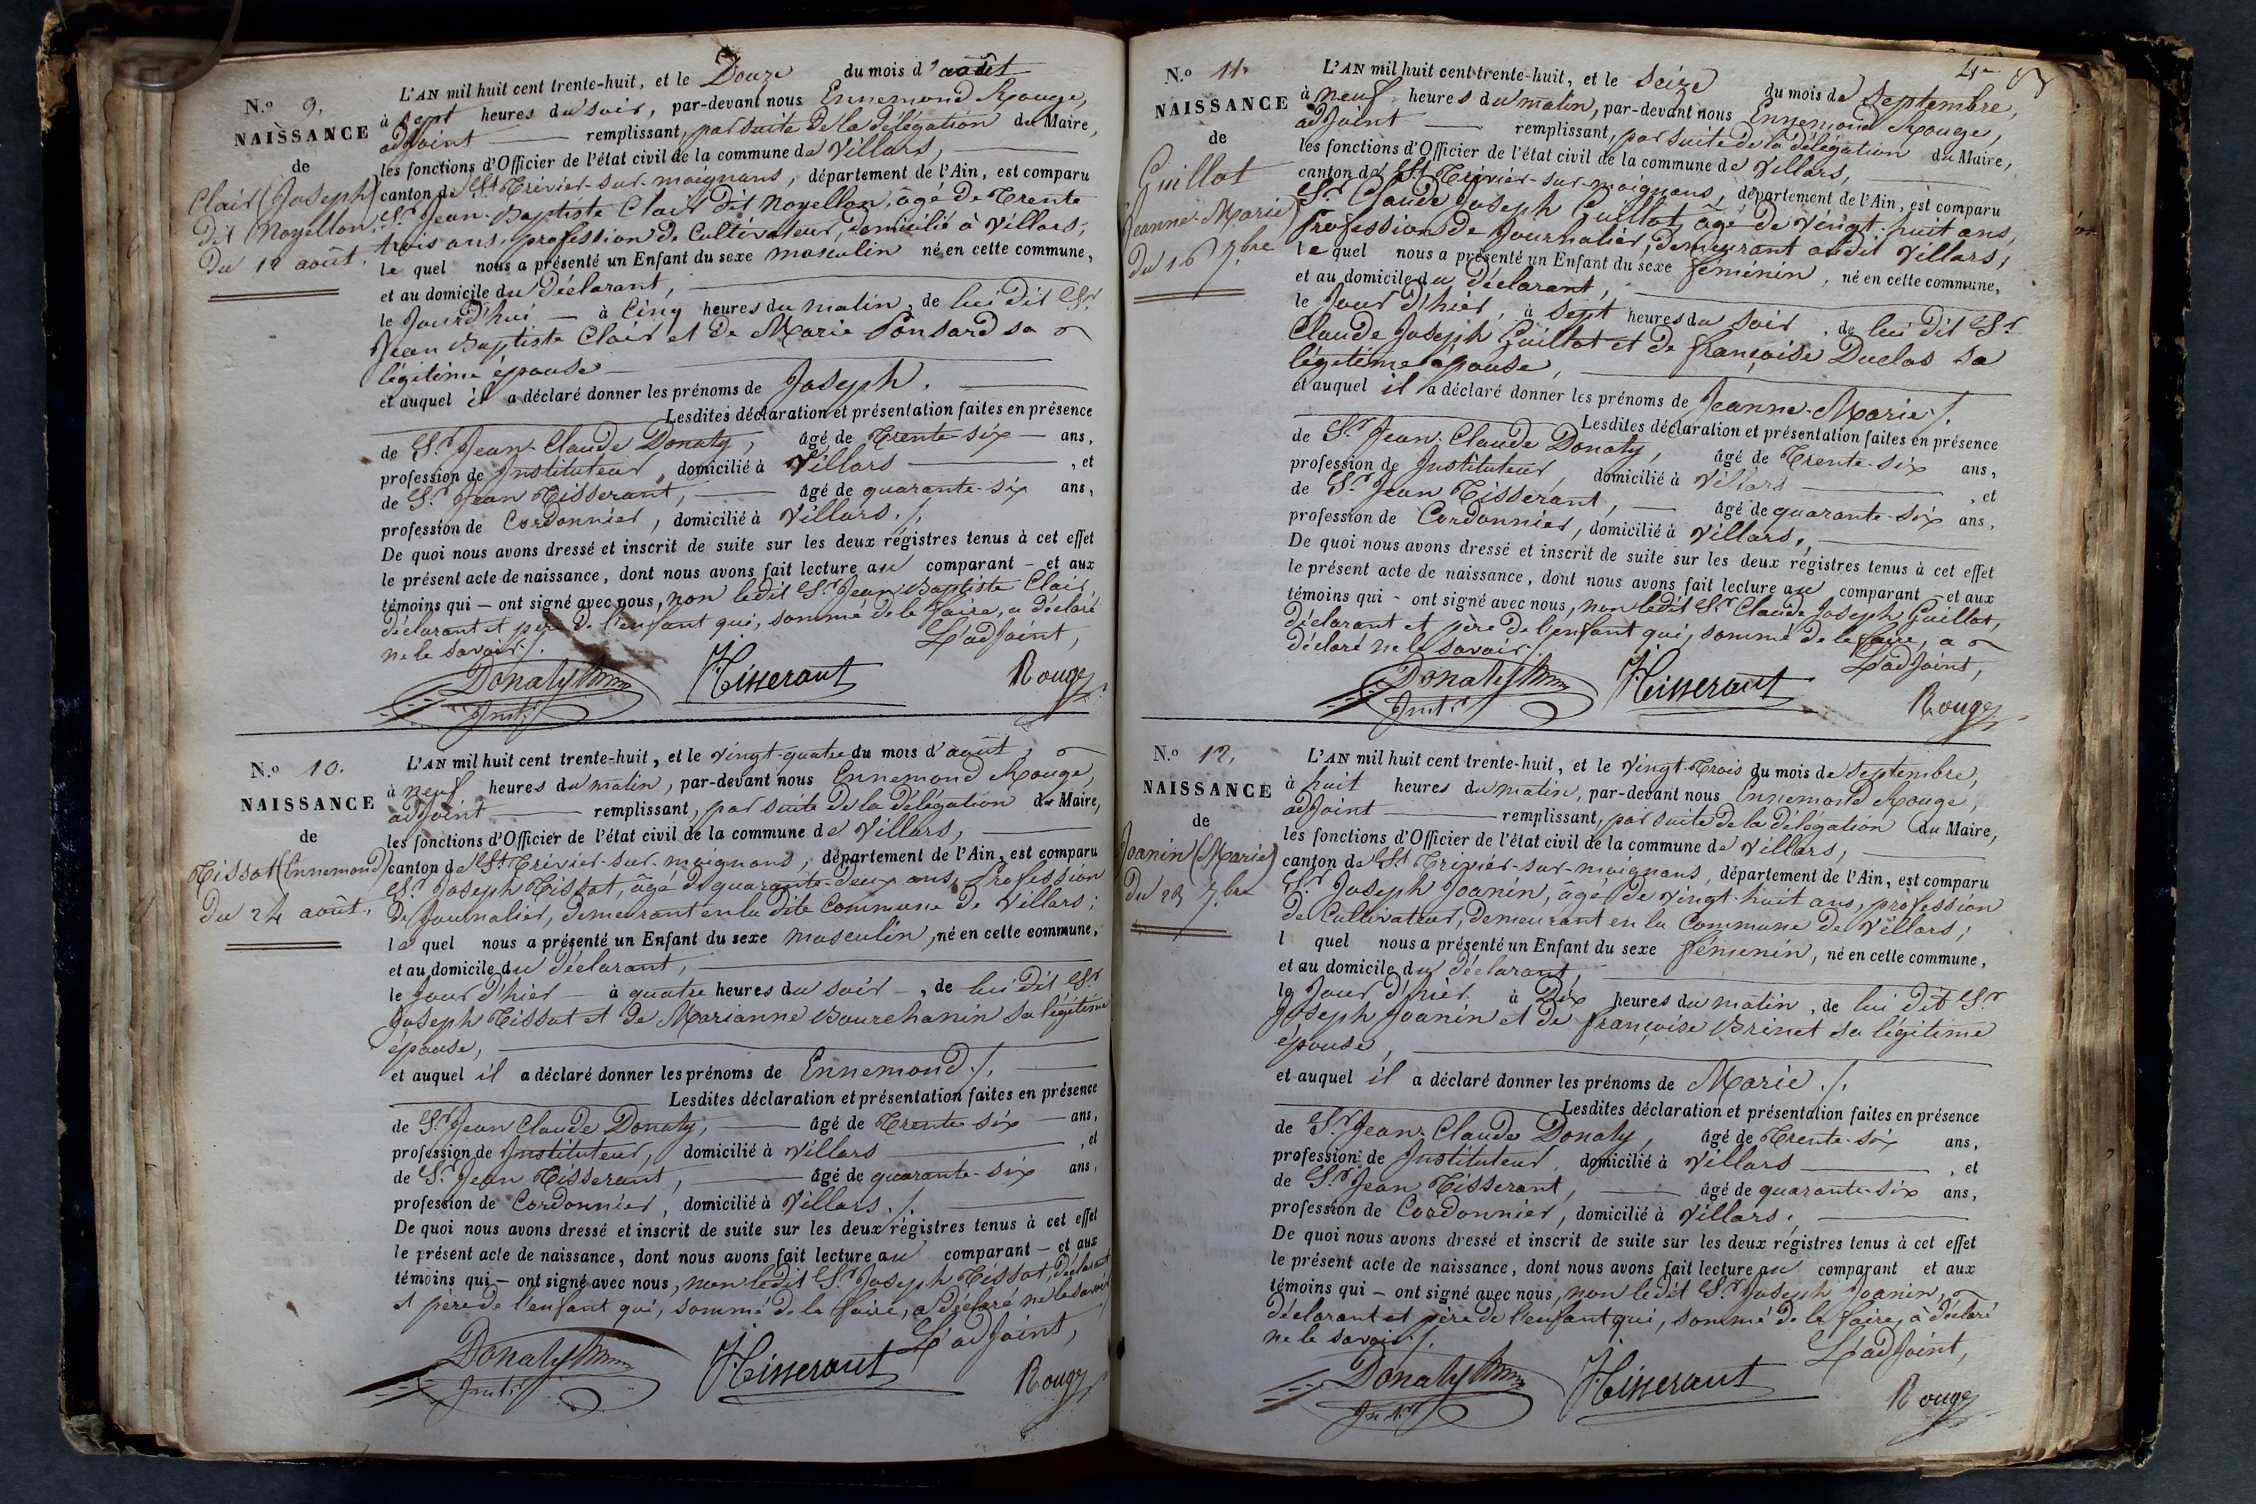 N.º 9.
NAISSANCE
de
Clair (Joseph)
dit Noyellon,
Du 12 août.
L'AN mil huit cent trente-huit, et le Douze du mois d'août
à sept heures du soir, par-devant nous Ennemond Rouge,
adjoint remplissant, par suite de la délégation du Maire,
les fonctions d'Officier de l'état civil de la commune de Villars,
canton de St Trivier-sur-moignans, département de l'Ain, est comparu
Sr. Jean-Baptiste Clair dit Noyellon, âgé de Trente
trois ans, profession de Cultivateur, domicilié à Villars;
le quel nous a présenté un Enfant du sexe masculin né en cette commune,
et au domicile du déclarant,
le Jourd'hui à Cinq heures du matin, de lui dit Sr
Jean Baptiste Clair et de Marie Ponsard sa
légitime épouse
et auquel il a déclaré donner les prénoms de Joseph.
Lesdites déclaration et présentation faites en présence
de Sr. Jean-Claude Donaty, âgé de Trente-six ans,
profession de Instituteur, domicilié à Villars, et
de Sr. Jean Tisserant, âgé de quarante-six ans,
profession de Cordonnier, domicilié à Villars./.
De quoi nous avons dressé et inscrit de suite sur les deux régistres tenus à cet effet
le présent acte de naissance, dont nous avons fait lecture au comparant et aux
témoins qui ont signé avec nous, non ledit Sr. Jean Baptiste Clair,
déclarant et père de l'enfant qui, sommé de le faire, a déclaré
ne le savoir./.
L'adjoint,
Donaty
Instr
Tisserant
Rouge
N.º 10.
NAISSANCE
de
Tissot (Ennemond)
Du 24 août.
L'AN mil huit cent trente-huit, et le vingt-quatre du mois d'août,
à neuf heures du matin, par-devant nous Ennemond Rouge,
adjoint remplissant, par suite de la délégation du Maire,
les fonctions d'Officier de l'état civil de la commune de Villars,
canton de St Trivier-sur-moignans, département de l'Ain, est comparu
Sr. Joseph Tissot, âgé de quarante-deux ans, Profession
de Journalier, demeurant en la dite Commune de Villars;
le quel nous a présenté un Enfant du sexe masculin, né en cette commune,
et au domicile du déclarant,
le Jour d'hier à quatre heures du soir, de lui dit Sr
Joseph Tissot et de Marianne Bourchanin sa légitime
épouse,
et auquel il a déclaré donner les prénoms de Ennemond./.
Lesdites déclaration et présentation faites en présence
de Sr. Jean Claude Donaty, âgé de Trente-six ans,
profession de Instituteur, domicilié à Villars, et
de Sr. Jean Tisserant, âgé de quarante-six ans,
profession de Cordonnier, domicilié à Villars./.
De quoi nous avons dressé et inscrit de suite sur les deux régistres tenus à cet effet
le présent acte de naissance, dont nous avons fait lecture au comparant et aux
témoins qui ont signé avec nous, non ledit Sr. Joseph Tissot, déclarant
et père de l'enfant qui, sommé de le faire, a déclaré ne le savoir
L'adjoint,
Donaty
Instr
Tisserant
Rouge
N.º 11.
NAISSANCE
de
Guillot
Jeanne-Marie
Du 16 7.bre
L'AN mil huit cent trente-huit, et le seize du mois de Septembre,
à neuf heures du matin, par-devant nous Ennemond Rouge,
adjoint remplissant, par suite de la délégation du Maire,
les fonctions d'Officier de l'état civil de la commune de Villars,
canton de St Trivier-sur-moignans, département de l'Ain, est comparu
Sr. Claude Joseph Guillot, âgé de vingt-huit ans,
Profession de Journalier, demeurant audit Villars;
le quel nous a présenté un Enfant du sexe féminin, né en cette commune,
et au domicile du déclarant,
le Jour d'hier, à sept heures du soir, de lui dit Sr
Claude Joseph Guillot et de françoise Duclos sa
légitime épouse,
et auquel il a déclaré donner les prénoms de Jeanne-Marie./.
Lesdites déclaration et présentation faites en présence
de Sr. Jean-Claude Donaty, âgé de Trente-six ans,
profession de Instituteur, domicilié à Villars, et
de Sr. Jean Tisserant, âgé de quarante-six ans,
profession de Cordonnier, domicilié à Villars.
De quoi nous avons dressé et inscrit de suite sur les deux régistres tenus à cet effet
le présent acte de naissance, dont nous avons fait lecture au comparant et aux
témoins qui - ont signé avec nous, non ledit Sr Claude Joseph Guillot,
déclarant et père de l'enfant qui, sommé de le faire, a
déclaré ne le savoir./.
L'adjoint,
Donaty
Instr
Tisserant
Rouge
N.º 12.
NAISSANCE
de
Joanin (Marie)
Du 23 7.bre
L'AN mil huit cent trente-huit, et le vingt-Trois du mois de Septembre,
à huit heures du matin, par-devant nous Ennemond Rouge,
adjoint remplissant, par suite de la délégation du Maire,
les fonctions d'Officier de l'état civil de la commune de Villars,
canton de St Trivier-sur-moignans, département de l'Ain, est comparu
Sr. Joseph Joanin, âgé de vingt-huit ans, profession
de Cultivateur, demeurant en la Commune de Villars;
l quel nous a présenté un Enfant du sexe féminin, né en cette commune,
et au domicile du déclarant,
le Jour d'hier à Dix heures du matin, de lui dit Sr
Joseph Joanin et de françoise Brinet sa légitime
épouse,
et auquel il a déclaré donner les prénoms de Marie./.
Lesdites déclaration et présentation faites en présence
de Sr. Jean-Claude Donaty, âgé de Trente-six ans,
profession de Instituteur, domicilié à Villars, et
de Sr. Jean Tisserant, âgé de quarante-six ans,
profession de Cordonnier, domicilié à Villars.
De quoi nous avons dressé et inscrit de suite sur les deux régistres tenus à cet effet
le présent acte de naissance, dont nous avons fait lecture au comparant et aux
témoins qui - ont signé avec nous, non ledit Sr. Joseph Joanin,
déclarant et père de l'enfant qui, sommé de le faire, a déclaré
ne le savoir./.
L'adjoint,
Donaty
Instr
Tisserant
Rouge